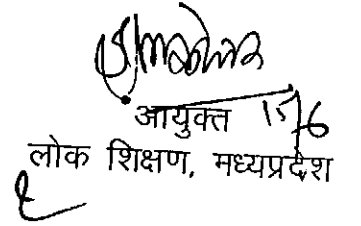 आयुक्त 15/6
लोक शिक्षण, मध्यप्रदेश